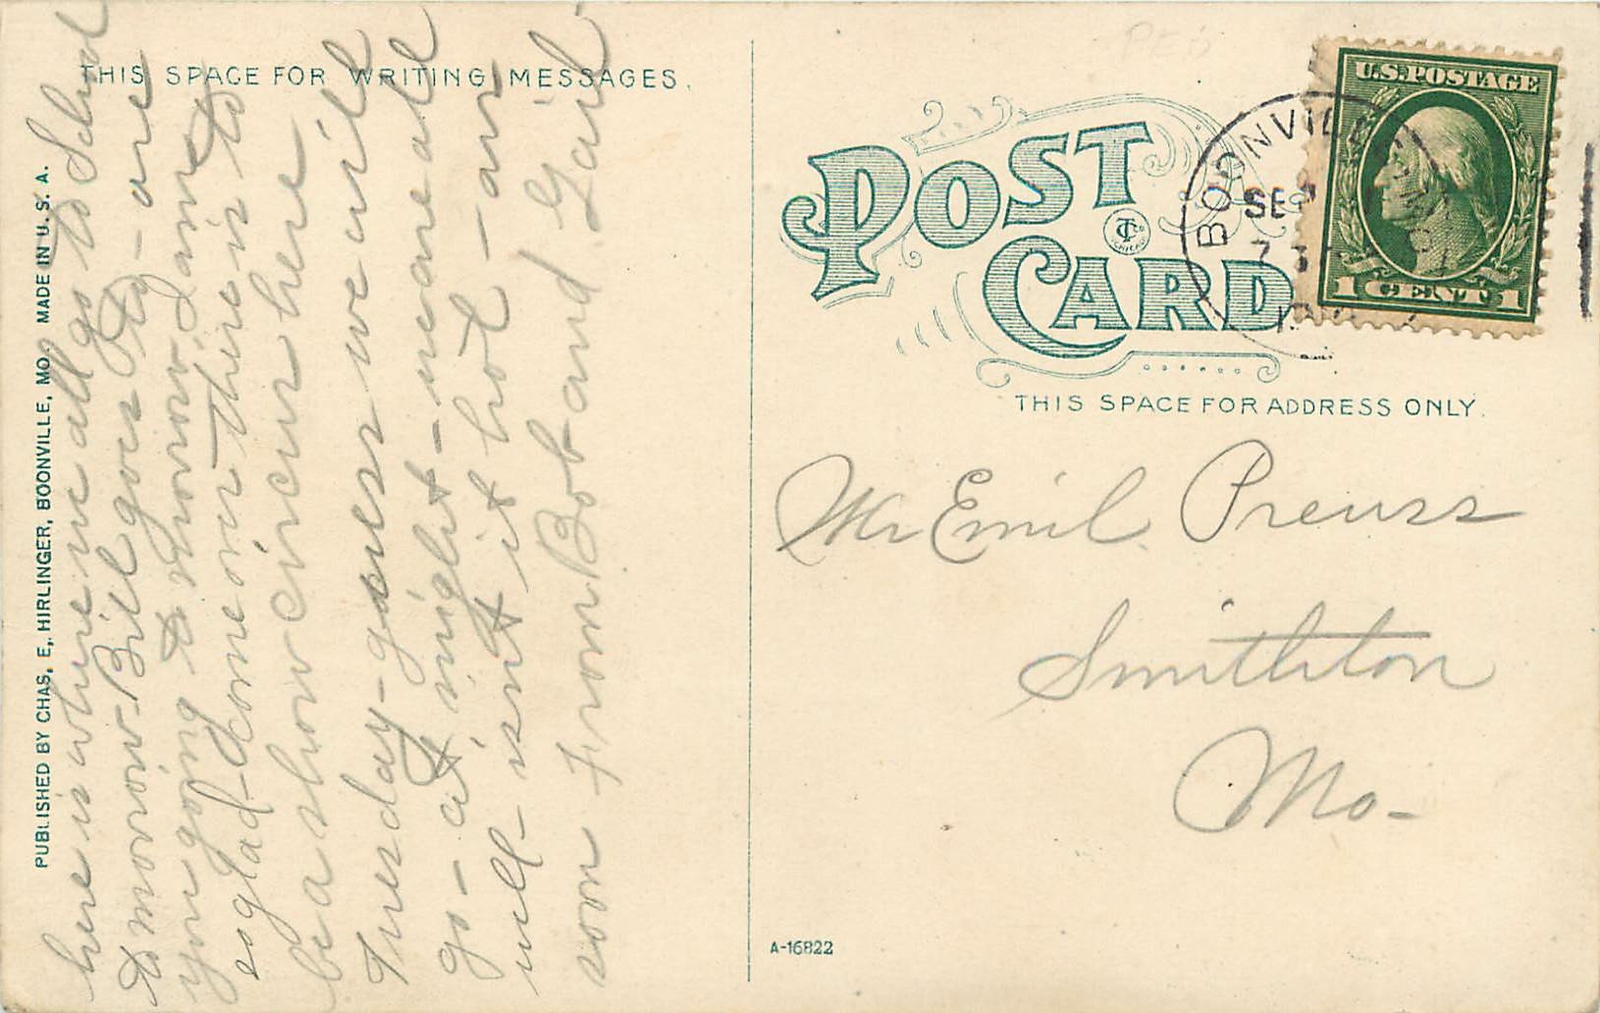 THIS SPACE FOR WRITING MESSAGES.
PUBLISHED BY CHAS. E. HIRLINGER, BOONVILLE, MO. MADE IN U. S. A.
here is where we all go to School
tomorrow Bill goes to - are
you going to morrow I am
so glad - come over there is to
be a show circus here
Tuesday - guess we will
go - at night - we are all
well - isnt it hot - an
soon From Bob and Gail
POST
CARD
BOONVILLE
SEP
7 3
U.S. POSTAGE
1 CENT 1
THIS SPACE FOR ADDRESS ONLY.
Mr Emil Preuss
Smithton
Mo-
A-16822